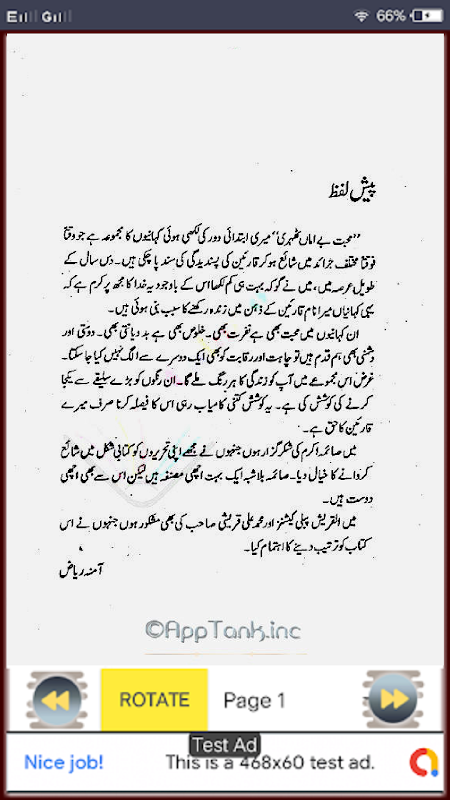 66%
پیش لفظ
”محبت بے اماں ٹھہری“ میری ابتدائی دور کی لکھی ہوئی کہانیوں کا مجموعہ ہے جو وقتاً
فوقتاً مختلف جرائد میں شائع ہو کر قارئین کی پسندیدگی کی سند پا چکی ہیں۔ دس سال کے
طویل عرصہ میں، میں نے گو کہ بہت ہی کم لکھا اس کے باوجود یہ خدا کا مجھ پر کرم ہے کہ
یہی کہانیاں میرا نام قارئین کے ذہن میں زندہ رکھنے کا سبب بنی ہوئی ہیں۔
ان کہانیوں میں محبت بھی ہے نفرت بھی۔ خلوص بھی ہے بددیانتی بھی۔ دوستی اور
دشمنی بھی ہم قدم ہیں تو چاہت اور رقابت کو بھی ایک دوسرے سے الگ نہیں کیا جا سکتا۔
غرض اس مجموعے میں آپ کو زندگی کا ہر رنگ ملے گا۔ ان رنگوں کو بڑے سلیقے سے یکجا
کرنے کی کوشش کی ہے۔ یہ کوشش کتنی کامیاب رہی اس کا فیصلہ کرنا صرف میرے
قارئین کا حق ہے۔
میں صائمہ اکرم کی شکر گزار ہوں جنہوں نے مجھے اپنی تحریروں کو کتابی شکل میں شائع
کروانے کا خیال دیا۔ صائمہ بلاشبہ ایک بہت اچھی مصنفہ ہیں لیکن اس سے بھی اچھی
دوست ہیں۔
میں القریش پبلی کیشنز اور محمد علی قریشی صاحب کی بھی مشکور ہوں جنہوں نے اس
کتاب کو ترتیب دینے کا اہتمام کیا۔
آمنہ ریاض
©AppTank.inc
ROTATE Page 1
Test Ad
Nice job! This is a 468x60 test ad.